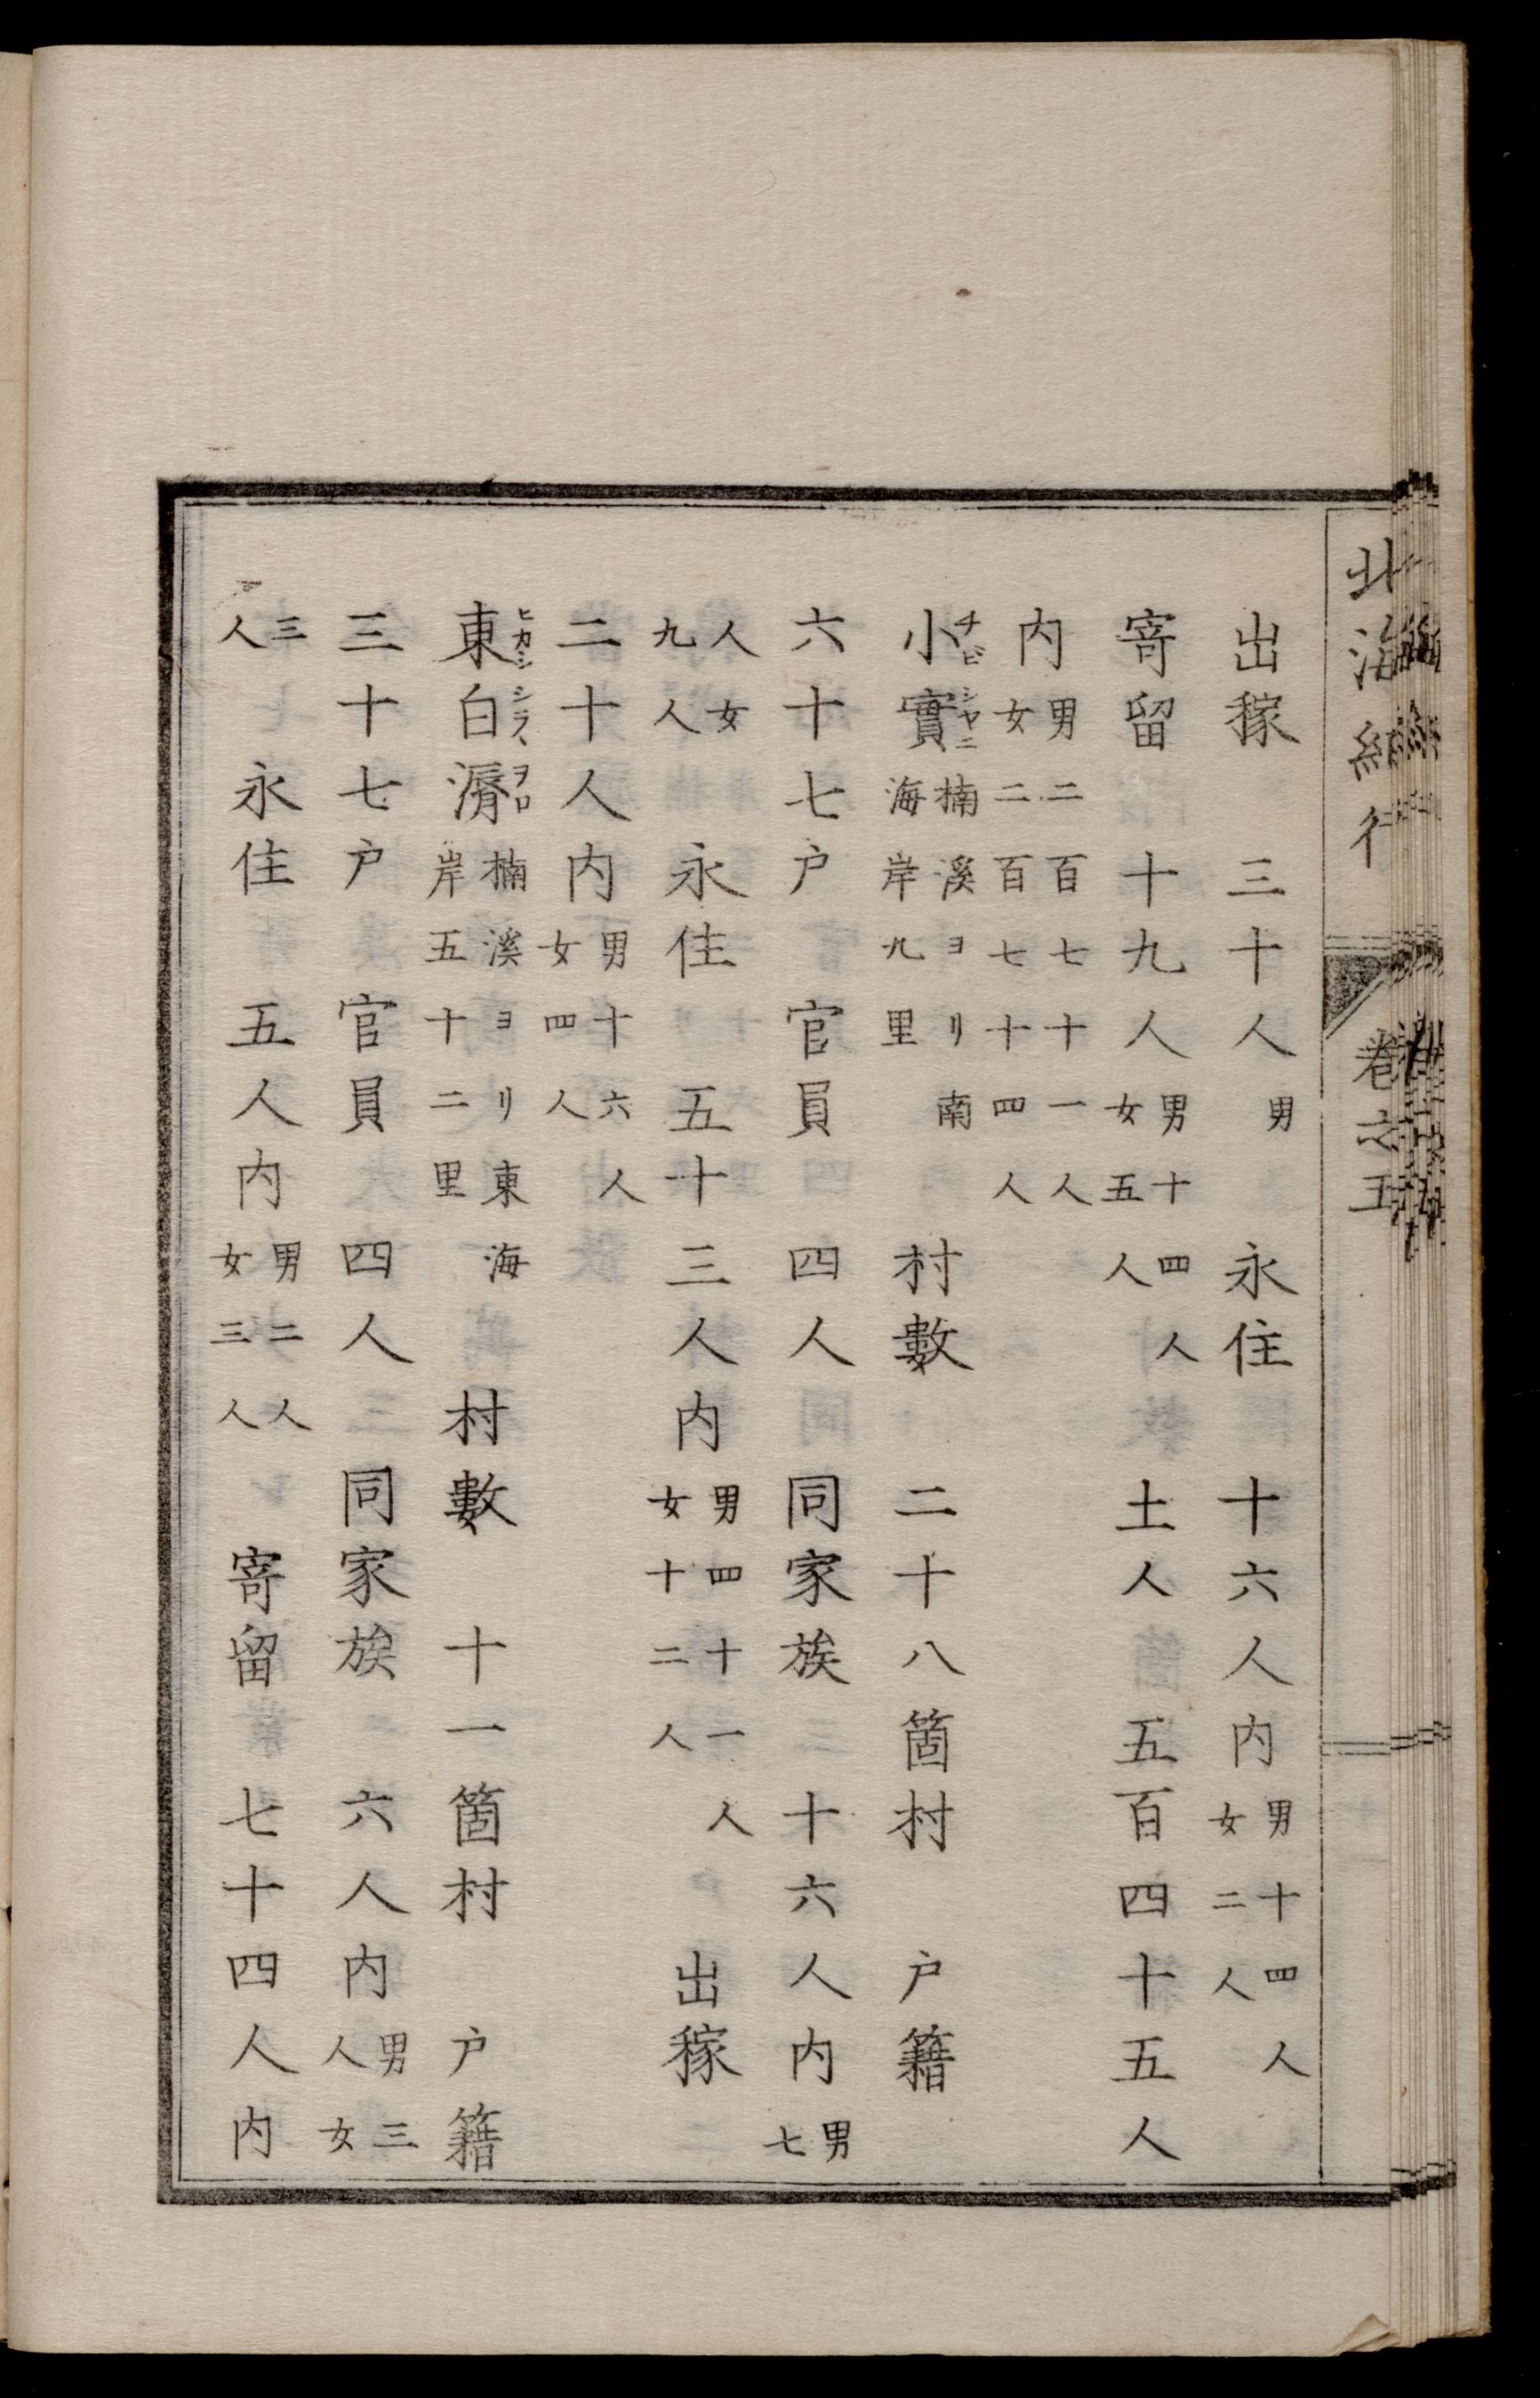 北海紀行 卷之五
出稼 三十人男 永住 十六人内男十四人女二人
寄留 十九人男十四人女五人 土人 五百四十五人
内男二百七十一人女二百七十四人
小實チビシヤニ楠溪ヨリ南海岸九里 村數 二十八箇村 户籍
六十七户 官員 四人 同家族 十六人内男七
人女九人 永住 五十三人内男四十一人女十二人 出稼
二十人内男十六人女四人
東白漘ヒカシシラヽヲロ楠溪ヨリ東海岸五十二里 村數 十一箇村 户籍
三十七户 官員 四人 同家族 六人内男三人女
三人 永住 五人内男二人女三人 寄留 七十四人内